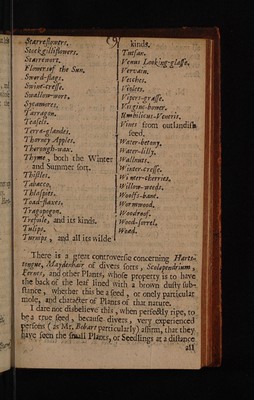 (9)
Starreflowers.
Stockgilliflowers.
Starrewort.
Flower of the Sun.
Sword-flags.
Swine-cresse.
Swallow-wort.
Sycamores.
Tarragon.
Teasels.
Terra-glandes.
Thorney Apples.
Thorough-wax.
Thyme, both the Winter
and Summer sort.
Thistles.
Tabacco.
Thlaspies.
Toad-flaxes.
Tragopogon.
Trefoils, and its kinds.
Tulips.
Turnips, and all its wilde
kinds.
Tutsan.
Venus Looking-glasse.
Vervain.
Vetches.
Violets.
Vipers-grasse.
Virgins-bower.
Umbilicus-Veneris.
Vines from outlandish
seed.
Water-betony.
Water-lilly.
Wallnuts.
Winter-cresse.
Winter-cherries.
Willow-weeds.
Woolfs-bane.
Wormwood.
Woodroof.
Wood-sorrel.
Woad.
There is a great controversie concerning Harts-
tongue, Maydenhair of divers sorts, Scolopendrium,
Fernes, and other Plants, whose property is to have
the back of the leaf lined with a brown dusty sub-
stance, whether this be a seed, or onely particular
mole, and character of Plants of that nature.
I dare not disbelieve this, when perfectly ripe, to
be a true seed, because divers, very experienced
persons (as Mr. Bobart particularly) affirm, that they
have seen the small Plants, or Seedlings at a distance
all